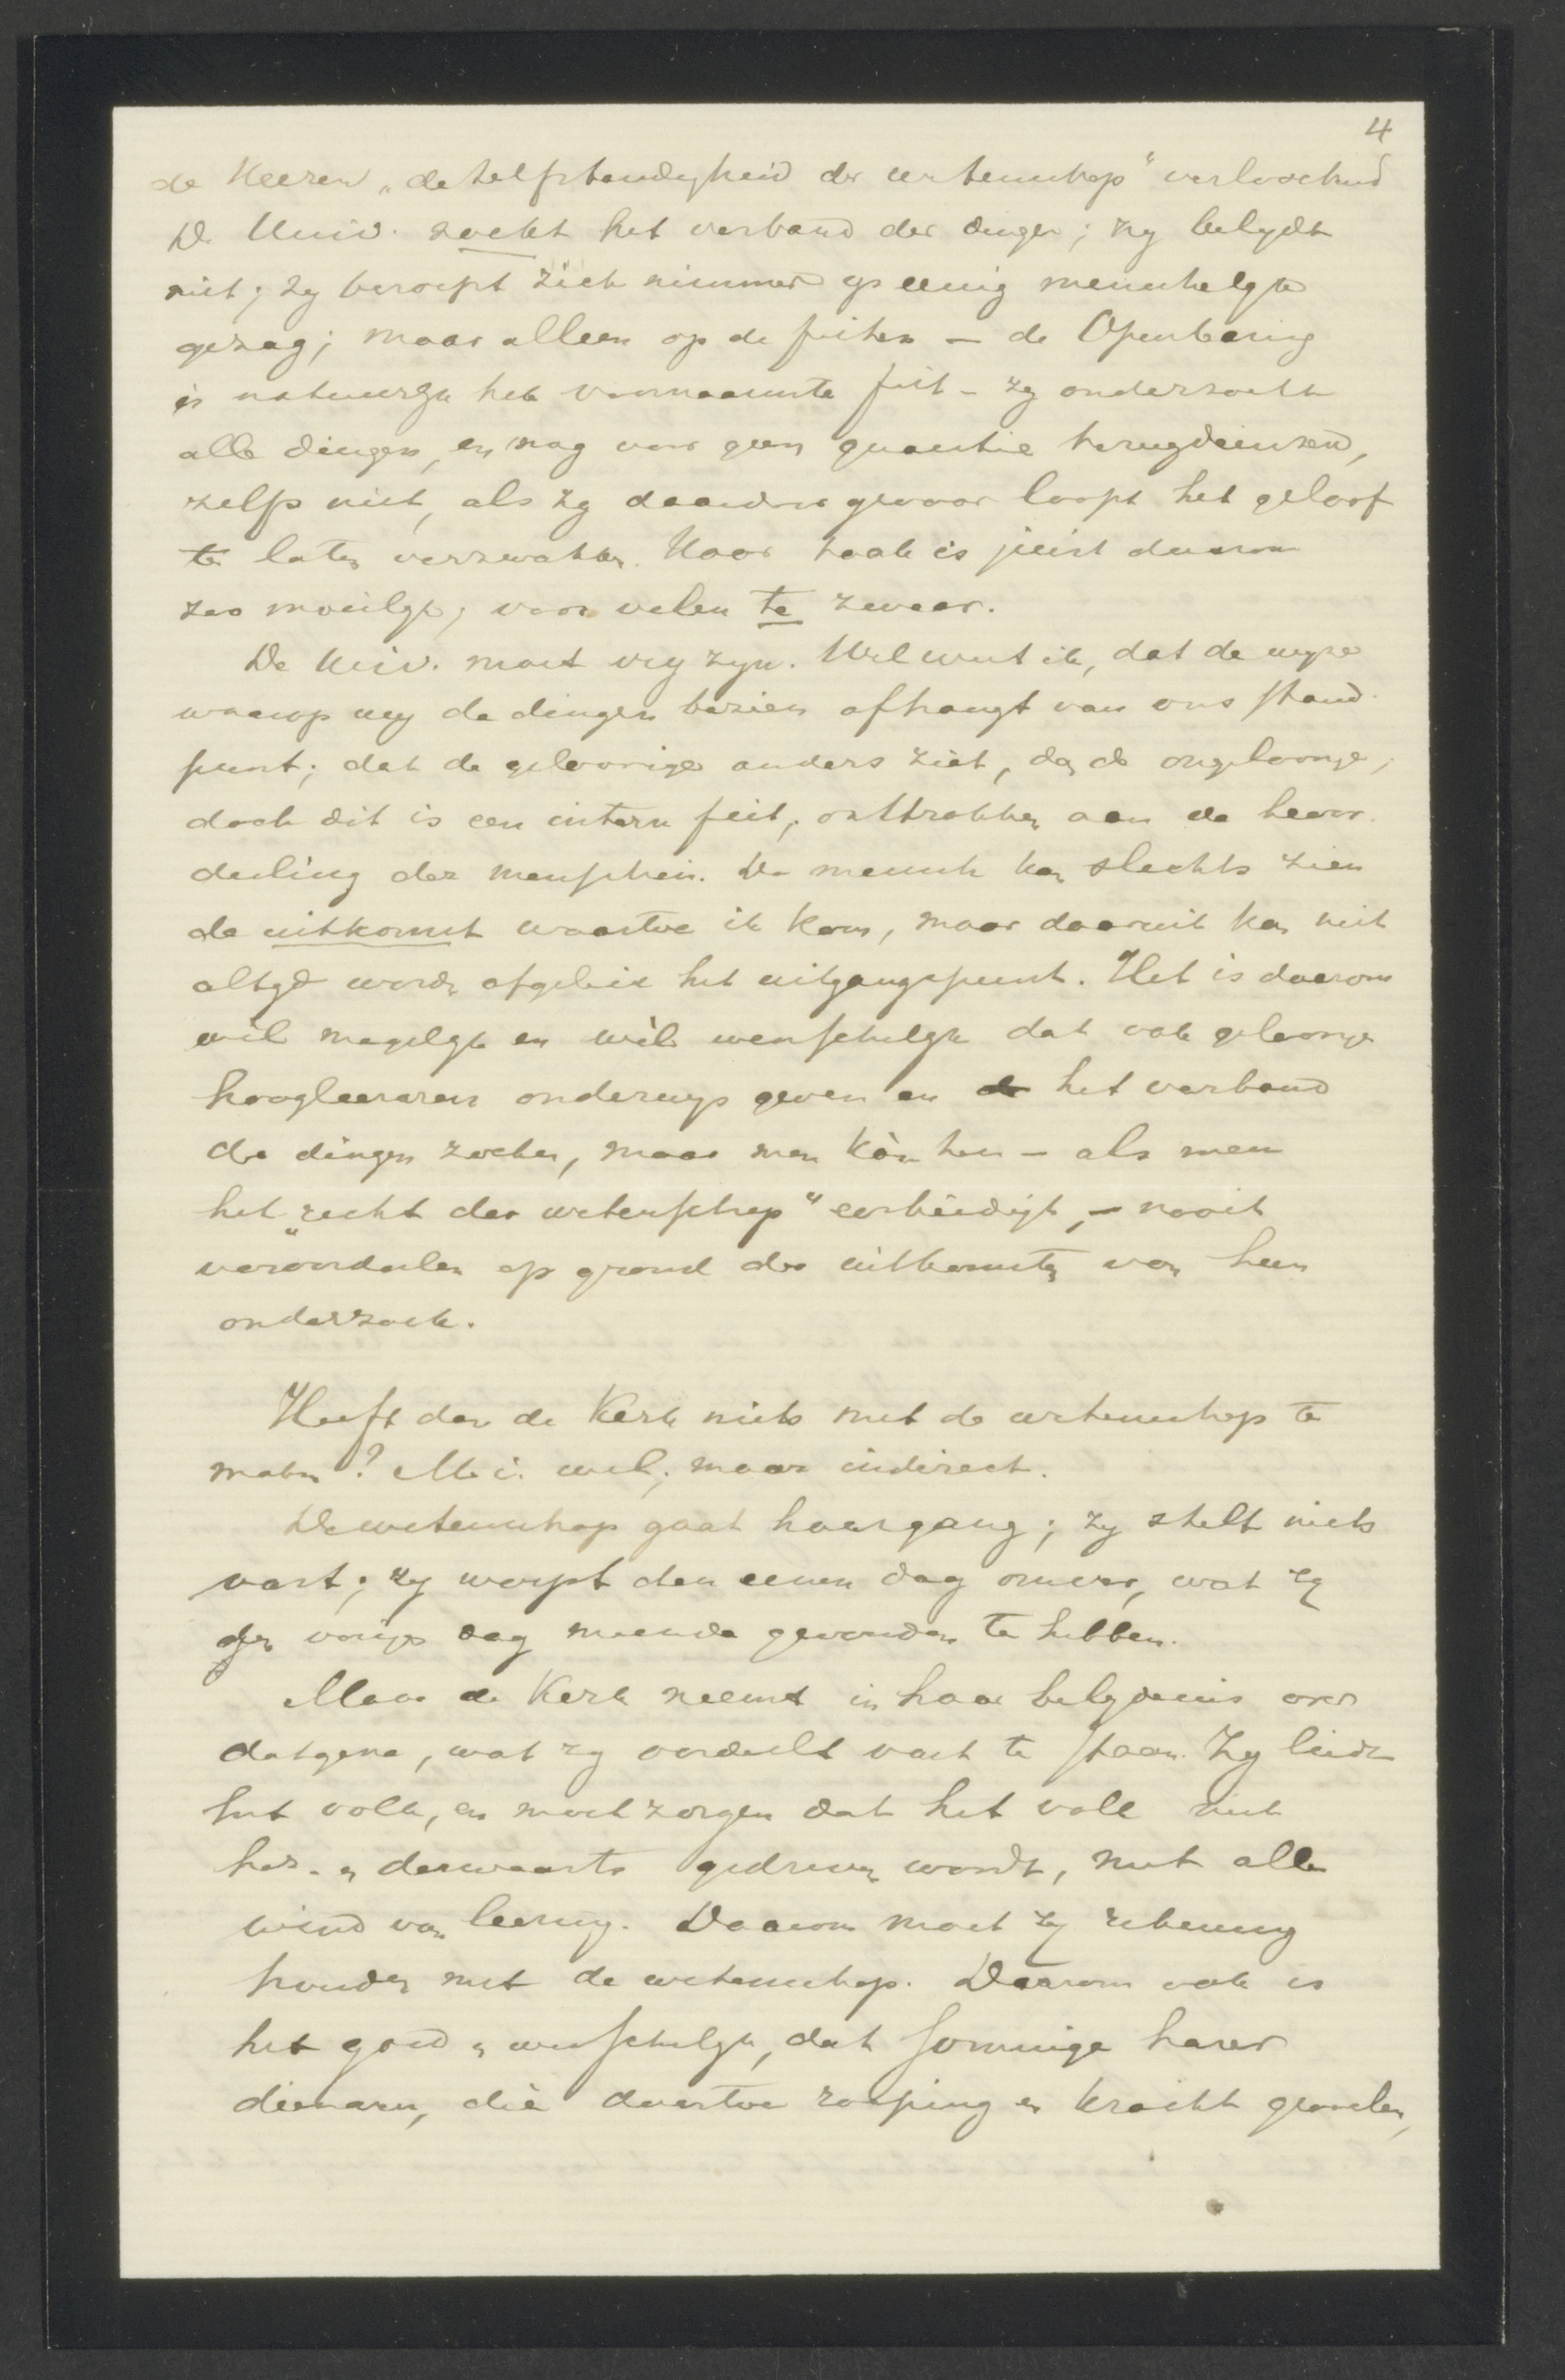 4
de Heeren „de zelfstandigheid der wetenschap" verloochend
De Univ. zoekt het verband der dingen; zij belijdt
niet; zij beroept zich nimmer op eenig menschelijk
gezag; maar alleen op de feiten — de Openbaring
is natuurlijk het voornaamste feit – zij onderzoekt
alle dingen, en mag voor geen quaestie terugdeinzen,
zelfs niet, als zij daardoor gevaar loopt het geloof
te laten verzwakken. Haar taak is juist daarom
zoo moeilijk, voor velen te zwaar.
De Univ. moet vrij zijn. Wel weet ik, dat de wijze
waarop wij de dingen bezien afhangt van ons stand-
punt; dat de geloovige anders ziet, dan de ongeloovige,
doch dit is een intern feit, onttrokken aan de beoor-
deeling der menschen. De mensch kan slechts zien
de uitkomst waartoe ik kom, maar daaruit kan niet
altijd worden afgeleid het uitgangspunt. Het is daarom
wèl mogelijk en wèl wenschelijk dat ook geloovige
hoogleeraren onderwijs geven en het verband
der dingen zoeken, maar men kàn hen – als men
het „recht der wetenschap" eerbiedigt, – nooit
veroordeelen op grond der uitkomsten van hun
onderzoek.
Heeft dan de Kerk niets met de wetenschap te
maken? M. i. wel, maar indirect.
De wetenschap gaat haar gang; zij stelt niets
vast; zij werpt den eenen dag omver, wat zij
den vorigen dag meende gevonden te hebben.
Maar de Kerk neemt in haar belijdenis over
datgene, wat zij oordeelt vast te staan. Zij leidt
het volk, en moet zorgen dat het volk niet
her- en derwaarts gedreven wordt, met allen
wind van leering. Daarom moet zij rekening
houden met de wetenschap. Daarom ook is
het goed en wenschelijk, dat sommige harer
dienaren, die daartoe roeping en kracht gevoelen,